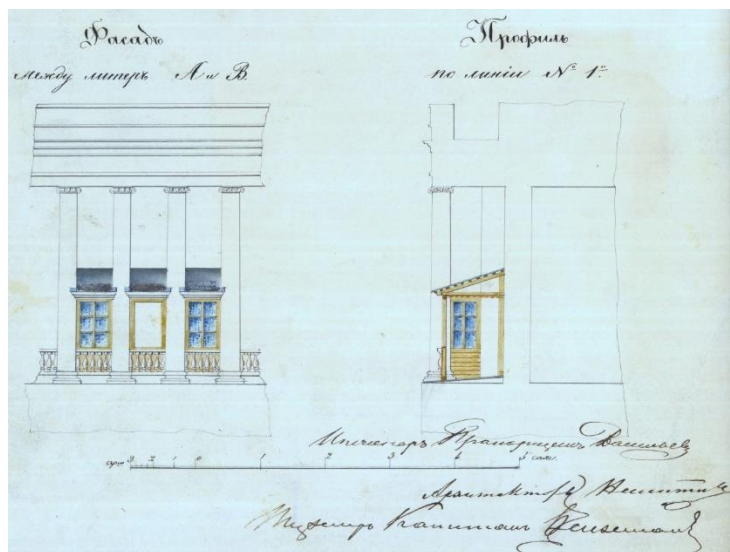 Фасадъ
между литеръ А и В.
Профиль
по линіи № 1º
арш 3 2 1 0 1 2 3 4 5 саж.
Инженеръ Прапорщикъ Васильев
Архитектор
Инженеръ Капитанъ